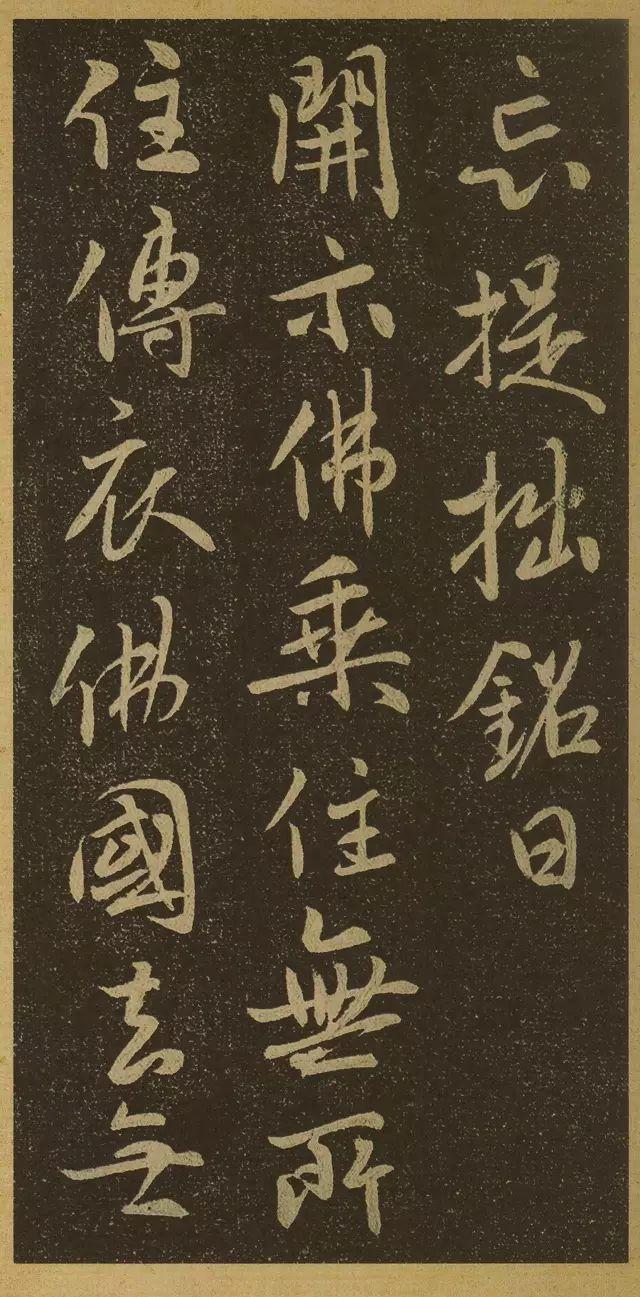 忘提拙銘曰
開示佛乘住無所
住傳衣佛國去無